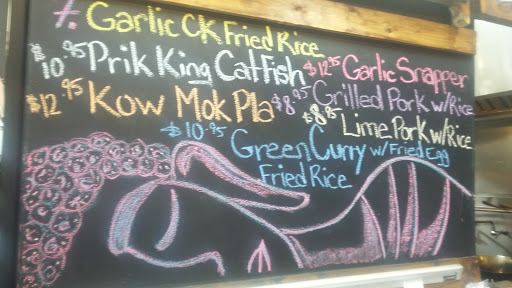 7. Garlic CK Fried Rice
$10.95 Prik King CatFish $12.95 Garlic Snapper
$12.95 Kow Mok Pla $8.95 Grilled Pork w/Rice
$8.95 Lime Pork w/Rice
$10.95 Green Curry w/Fried Egg
Fried Rice